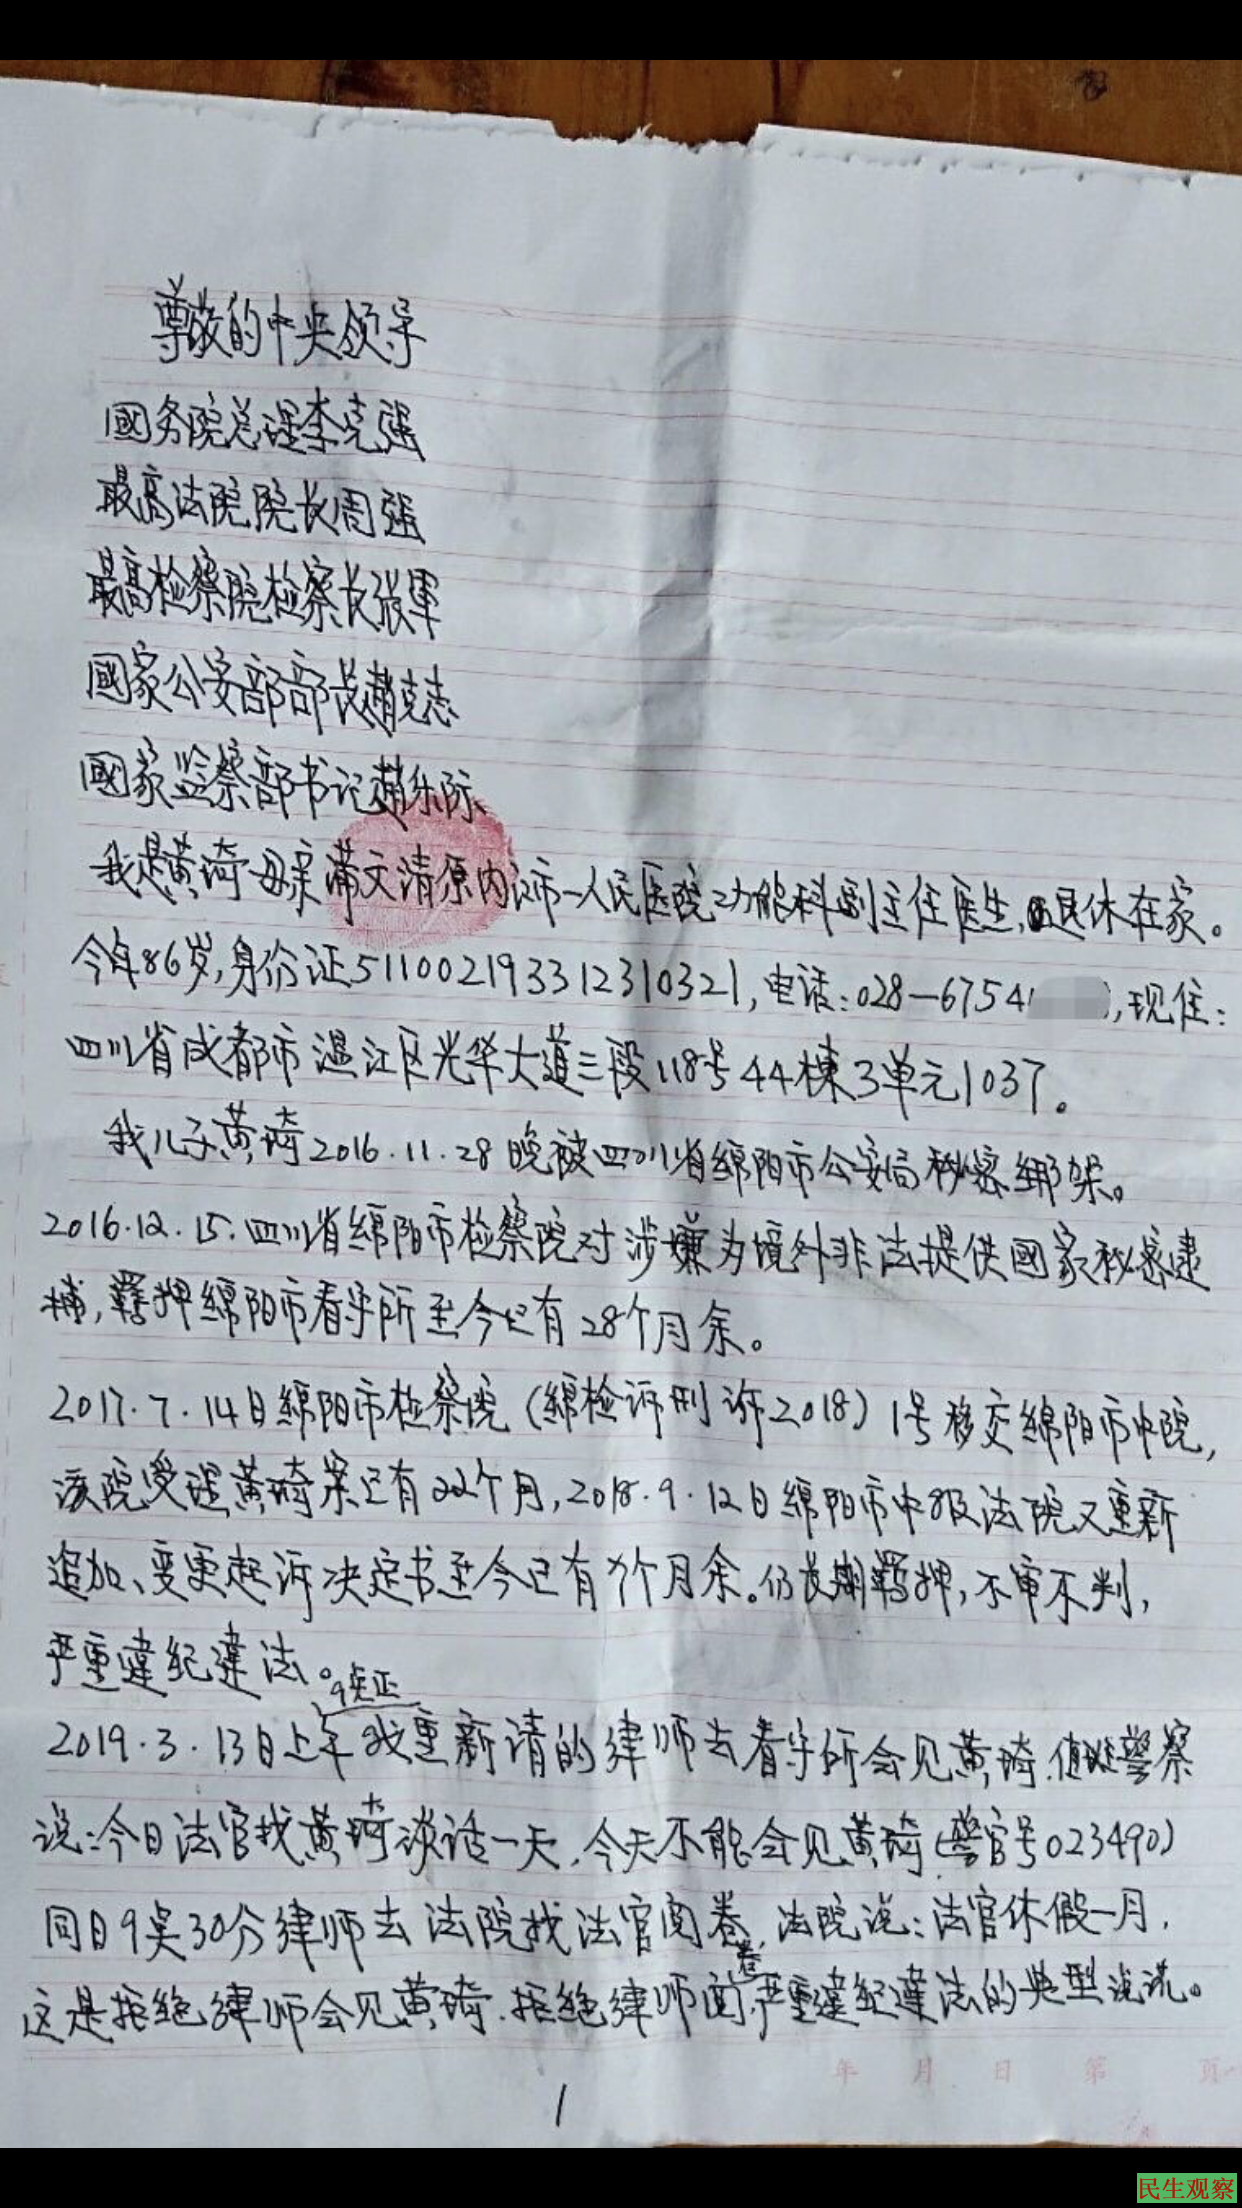 尊敬的中央领导
國务院总理李克强
最高法院院长周强
最高检察院检察长张軍
國家公安部部长趙克志
國家监察部书记趙乐际
我是黄琦母亲蒲文清原内江市一人民医院功能科副主任医生,退休在家。
今年86岁,身份证511002193312310321,电话:028—6754,现住:
四川省成都市温江区光华大道三段118号44栋3单元1037。
我儿子黄琦2016.11.28晚被四川省绵阳市公安局秘密绑架。
2016.12.15.四川省绵阳市检察院对涉嫌为境外非法提供國家秘密逮
捕,羁押绵阳市看守所至今已有28个月余。
2017.7.14日绵阳市检察院(绵检诉刑诉2018)1号移交绵阳市中院,
该院受理黄琦案已有22个月,2018.9.12日绵阳市中级法院又重新
追加、变更起诉决定书至今已有7个月余。仍长期羁押,不审不判,
严重違纪違法。
9点正
2019.3.13日上午我重新请的律师去看守所会见黄琦.值班警察
说:今日法官找黄琦谈话一天.今天不能会见黄琦(警官号023490)
同日9点30分律师去法院找法官阅卷,法院说:法官休假一月,
这是拒绝律师会见黄琦.拒绝律师阅卷,严重違纪違法的典型说谎。
年 月 日 第 頁
1
民生观察